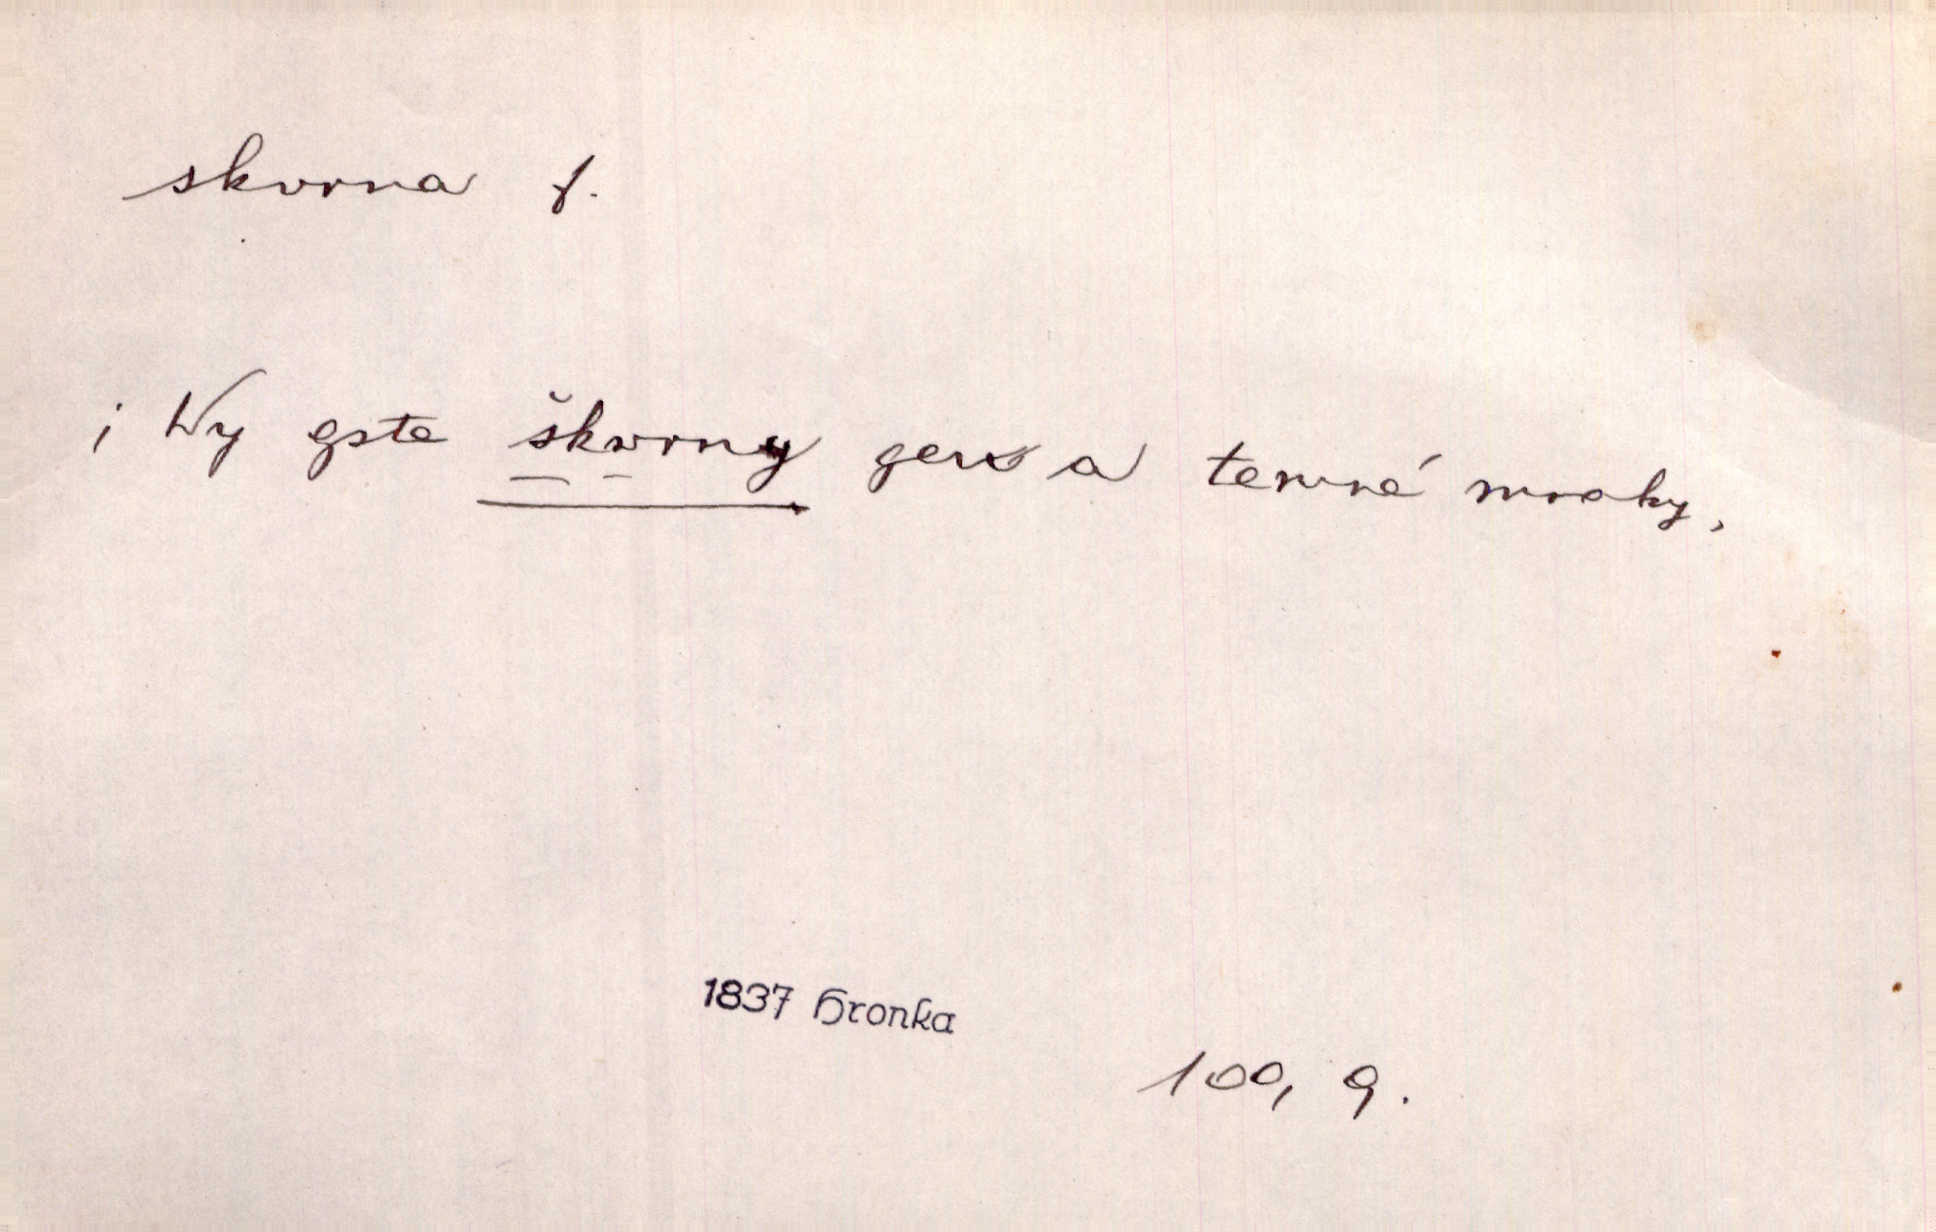 skvrna f.
i Wy gste škvrny gen a temné mraky,
1837 Hronka
100, 9.